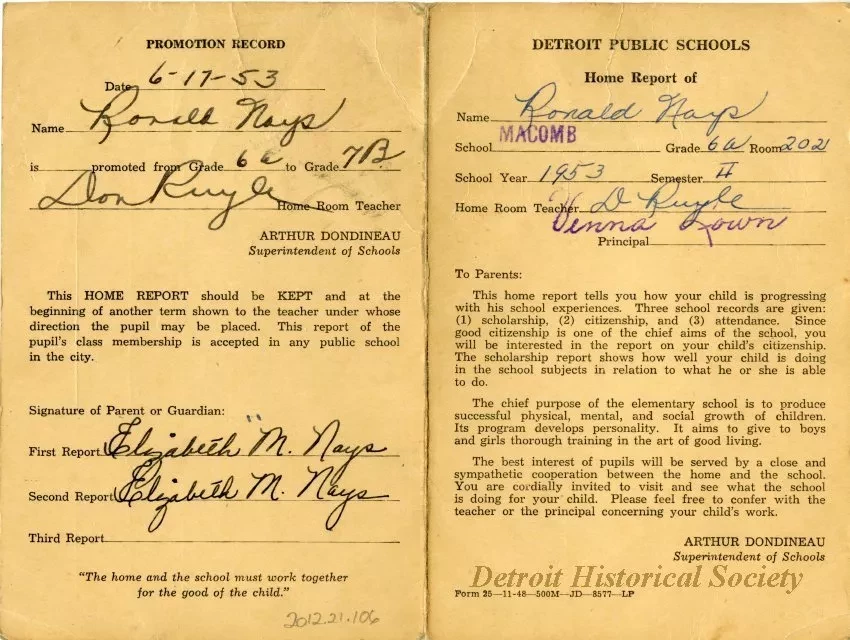 PROMOTION RECORD
Date 6-17-53
Name Ronald Nays
is promoted from Grade 6a to Grade 7B
Don Ruyle
Home Room Teacher
ARTHUR DONDINEAU
Superintendent of Schools
This HOME REPORT should be KEPT and at the
beginning of another term shown to the teacher under whose
direction the pupil may be placed. This report of the
pupil's class membership is accepted in any public school
in the city.
Signature of Parent or Guardian:
First Report Elizabeth M. Nays
Second Report Elizabeth M. Nays
Third Report
"The home and the school must work together
for the good of the child."
2012.21.106
DETROIT PUBLIC SCHOOLS
Home Report of
Name Ronald Nays
School MACOMB Grade 6a Room 202
School Year 1953 Semester II
Home Room Teacher D Ruyle
Venna
Principal
To Parents:
This home report tells you how your child is progressing
with his school experiences. Three school records are given:
(1) scholarship, (2) citizenship, and (3) attendance. Since
good citizenship is one of the chief aims of the school, you
will be interested in the report on your child's citizenship.
The scholarship report shows how well your child is doing
in the school subjects in relation to what he or she is able
to do.
The chief purpose of the elementary school is to produce
successful physical, mental, and social growth of children.
Its program develops personality. It aims to give to boys
and girls thorough training in the art of good living.
The best interest of pupils will be served by a close and
sympathetic cooperation between the home and the school.
You are cordially invited to visit and see what the school
is doing for your child. Please feel free to confer with the
teacher or the principal concerning your child's work.
ARTHUR DONDINEAU
Superintendent of Schools
Detroit Historical Society
Form 25—11-48—500M—JD—8577—LP